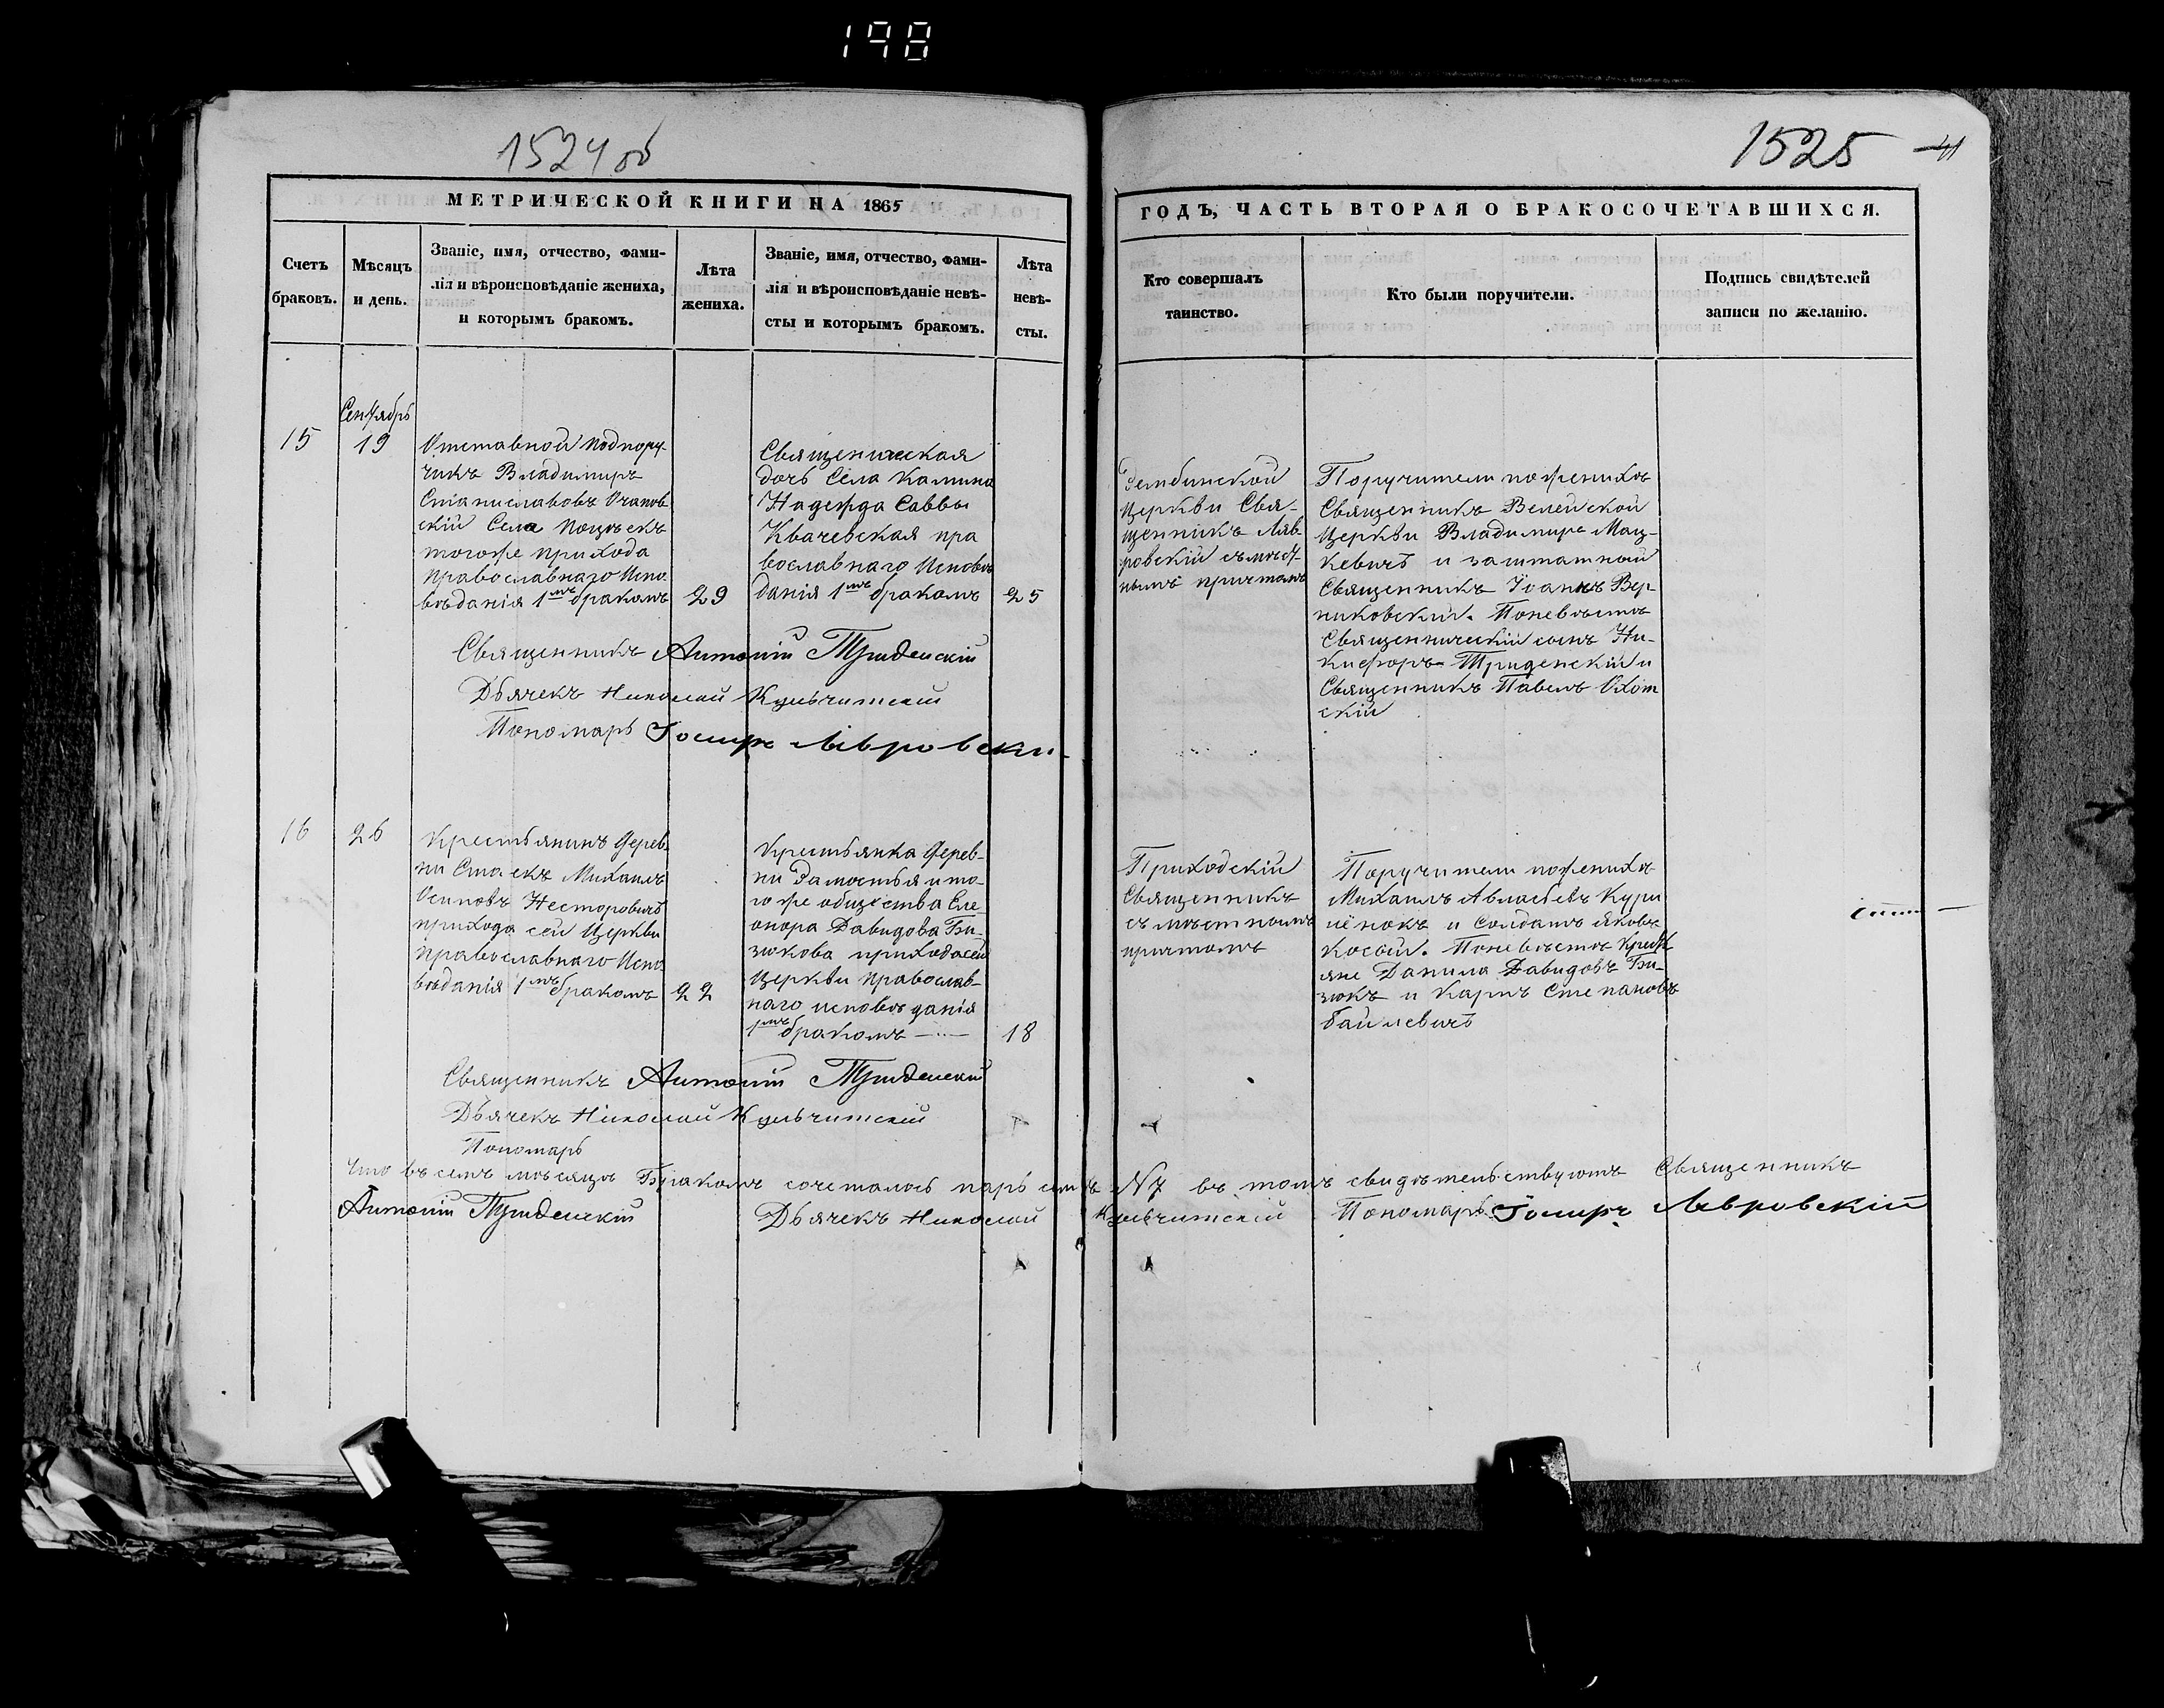 198
1524 об
1525
41
МЕТРИЧЕСКОЙ КНИГИ НА 1865
ГОДЪ, ЧАСТЬ ВТОРАЯ О БРАКОСОЧЕТАВШИХСЯ.
Счетъ
браковъ.
Мѣсяцъ
и день.
Званіе, имя, отчество, фами-
лія и вѣроисповѣданіе жениха,
и которымъ бракомъ.
Лѣта
жениха.
Званіе, имя, отчество, фами-
лія и вѣроисповѣданіе невѣ-
сты и которымъ бракомъ.
Лѣта
невѣ-
сты.
Кто совершалъ
таинство.
Кто были поручители.
Подпись свидѣтелей
записи по желанію.
Сентябрь
15
19
Отставной подпору-
чикъ Владимиръ
Станиславовъ
скій Села
тогоже прихода
православнаго Испо
вѣданія 1мъ бракомъ
29
Священическая
дочь Села Камина
Надежда Саввы
Квачевская пра
вославнаго Исповѣ
данія 1мъ бракомъ
25
Зембинской
Церкви Свя-
щенникъ Ляв-
ровскій съ мѣст-
нымъ причтомъ
Поручители по женихѣ
Священникъ Велейской
Церкви Владимиръ Мац-
кевичъ и заштатный
Священникъ Іоаннъ Вер-
никовскій. По невѣстѣ
Священническій сынъ Ни-
кифоръ Триденскій и
Священникъ Павелъ Охот
скій
Священникъ Антоній Триденскій
Дьячекъ Николай Кульчитскій
Пономарь Іосифъ Лявровскій
16
26
Крестьянинъ Дерев-
ни Михаилъ
Осиповъ Несторовичъ
прихода сей Церкви
православнаго Испо
вѣданія 1мъ бракомъ
22
Крестьянка Дерев-
ни Замостья и то-
го же общества Еле
онора Давидова Би-
зюкова прихода сей
Церкви Православ-
наго исповѣданія
1мъ бракомъ
18
Приходскій
Священникъ
съ мѣстнымъ
причтомъ
Поручители по женихѣ
Михаилъ Авласевъ Кури
лёнокъ и Солдатъ Яковъ
Косый. По невѣстѣ Кресть
яне Данила Давидовъ Би-
зюкъ и Карпъ Степановъ
Байлевичъ
Священникъ Антоній Триденскій
Дьячекъ Николай Кульчитскій
Пономарь
Что въ семъ мѣсяцѣ Бракомъ сочеталось паръ семь N 7 въ томъ свидѣтельствуютъ Священникъ
Антоній Триденскій Дьячекъ Николай Кульчитскій Пономарь Іосифъ Лявровскій